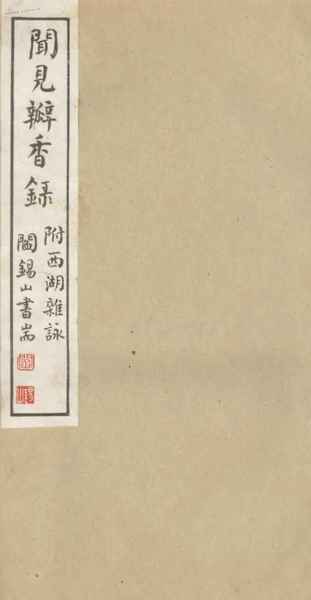 聞見瓣香錄
附西湖雜詠
閻錫山書耑